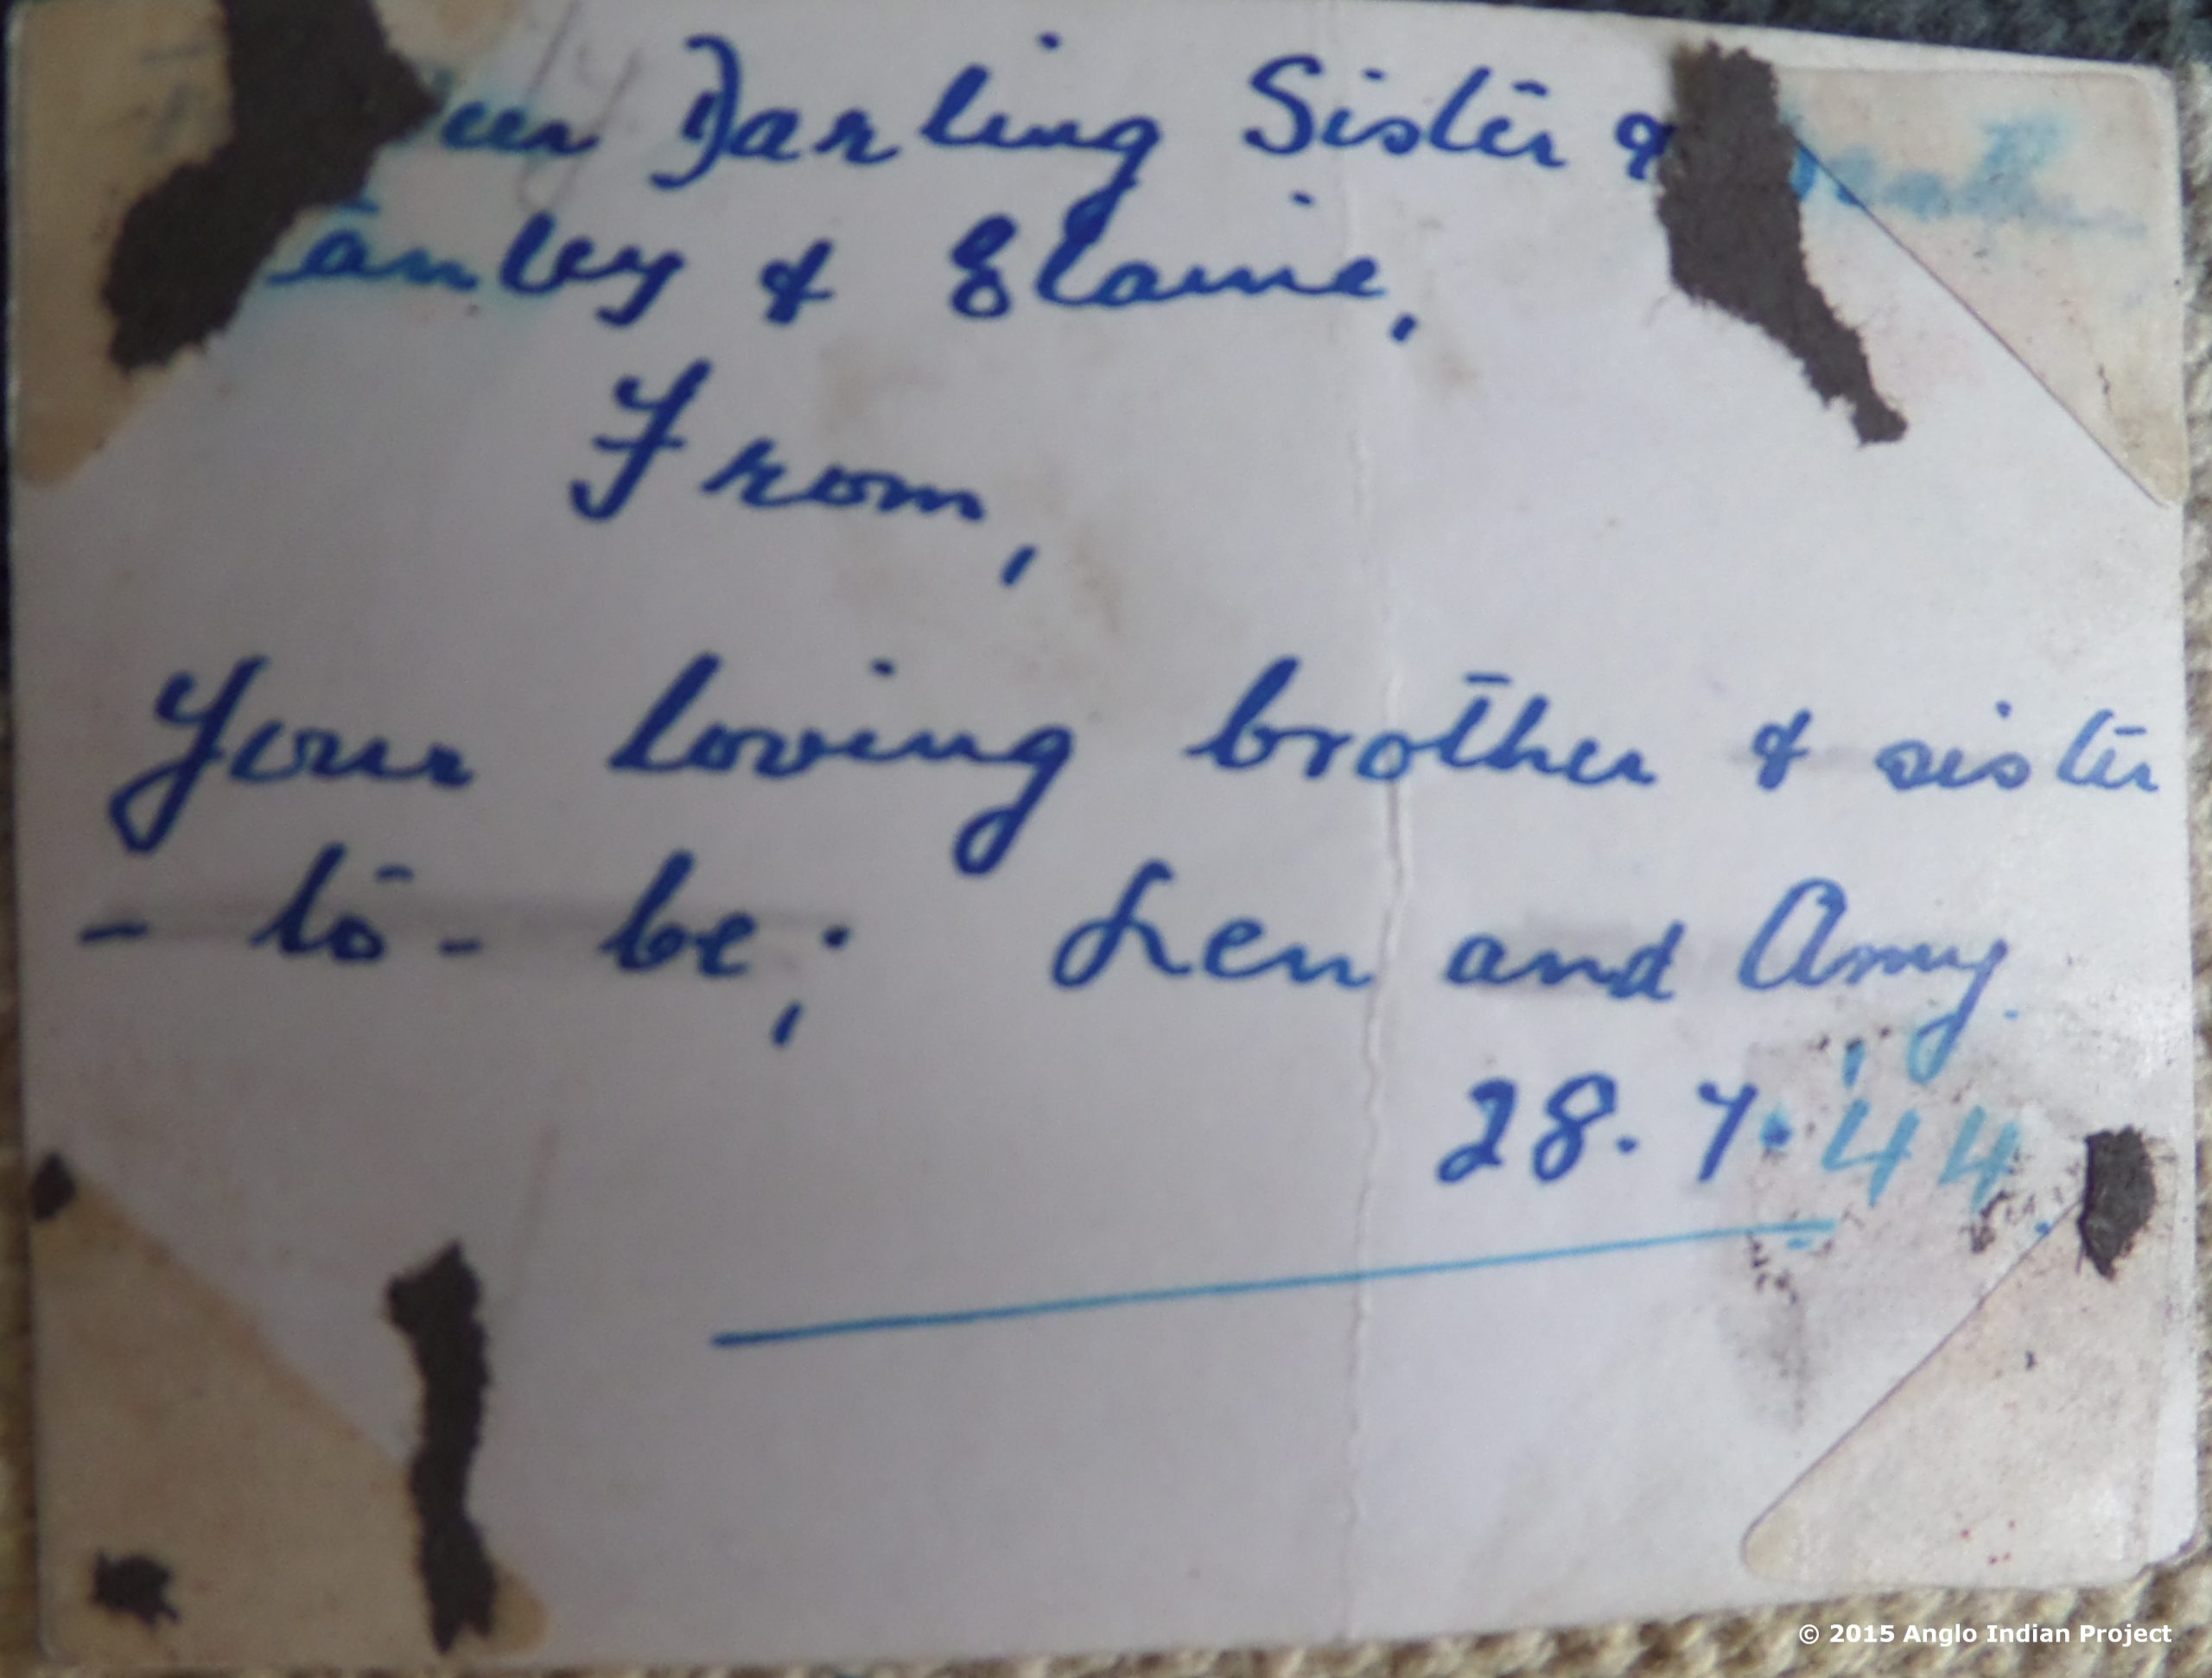 Darling Sister &
& Elaine,
From,
Your loving brother & sister
- to - be; Len and Amy.
28.7.'44.
© 2015 Anglo Indian Project